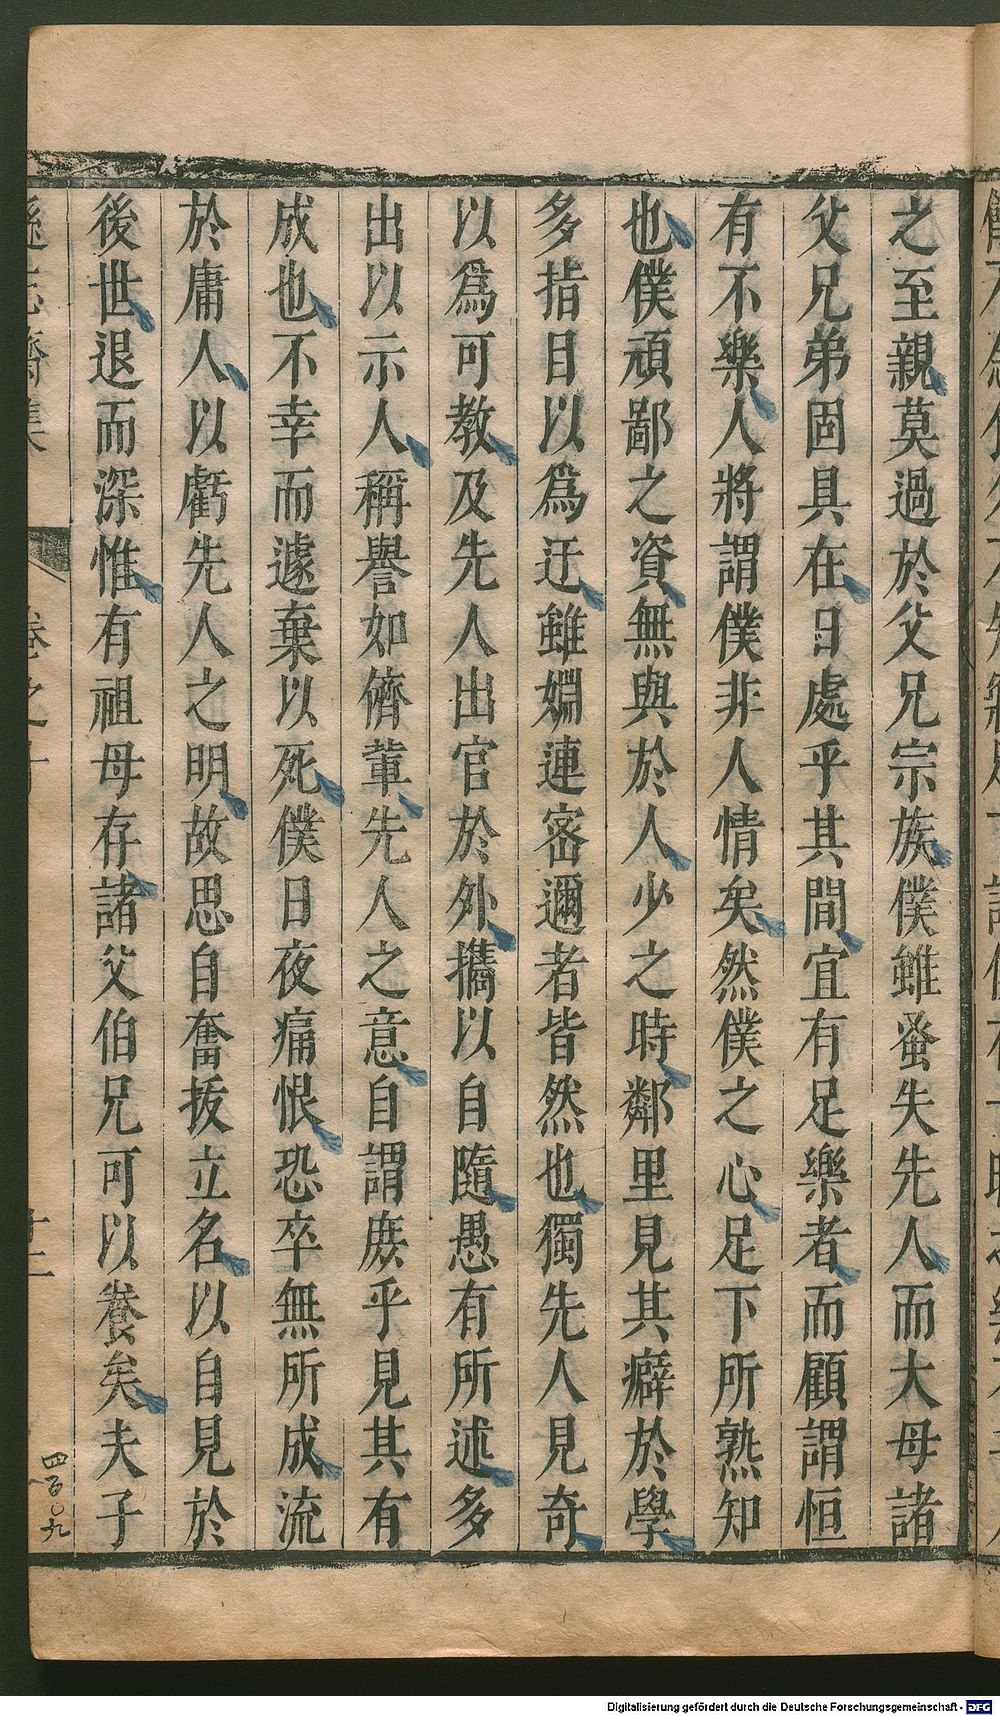 之至親莫過於父兄宗族僕雖蚤失先人而大母諸
父兄弟固具在日處乎其間宜有足樂者而顧謂恒
有不樂人將謂僕非人情矣然僕之心足下所熟知
也僕頑鄙之資無與於人少之時鄰里見其癖於學
多指目以爲迂雖婣連密邇者皆然也獨先人見奇
以爲可教及先人出官於外攜以自隨愚有所述多
出以示人稱譽如儕軰先人之意自謂庶乎見其有
成也不幸而遽棄以死僕日夜痛恨恐卒無所成流
於庸人以虧先人之明故思自奮拔立名以自見於
後世退而深惟有祖母存諸父伯兄可以養矣夫子
遜志齋集
卷之十
十二
四百〇九
Digitalisierung gefördert durch die Deutsche Forschungsgemeinschaft - DFG